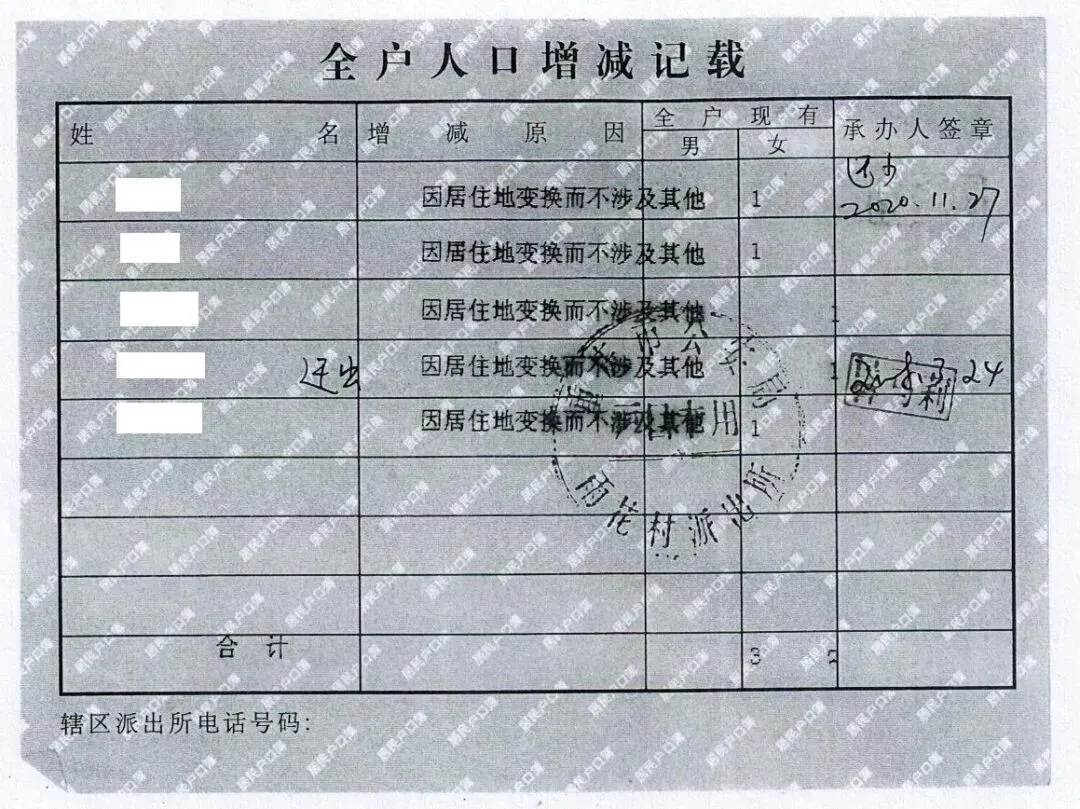 全户人口增减记载
姓名 增减原因 全户现有 承办人签章
男 女
因居住地变换而不涉及其他 1 迁出
2020.11.27
因居住地变换而不涉及其他 1
因居住地变换而不涉及其他 1
迁出 因居住地变换而不涉及其他 1 24
因居住地变换而不涉及其他 1
市公安局
专用
雨花村派出所
合计 3 2
辖区派出所电话号码:
居民户口簿